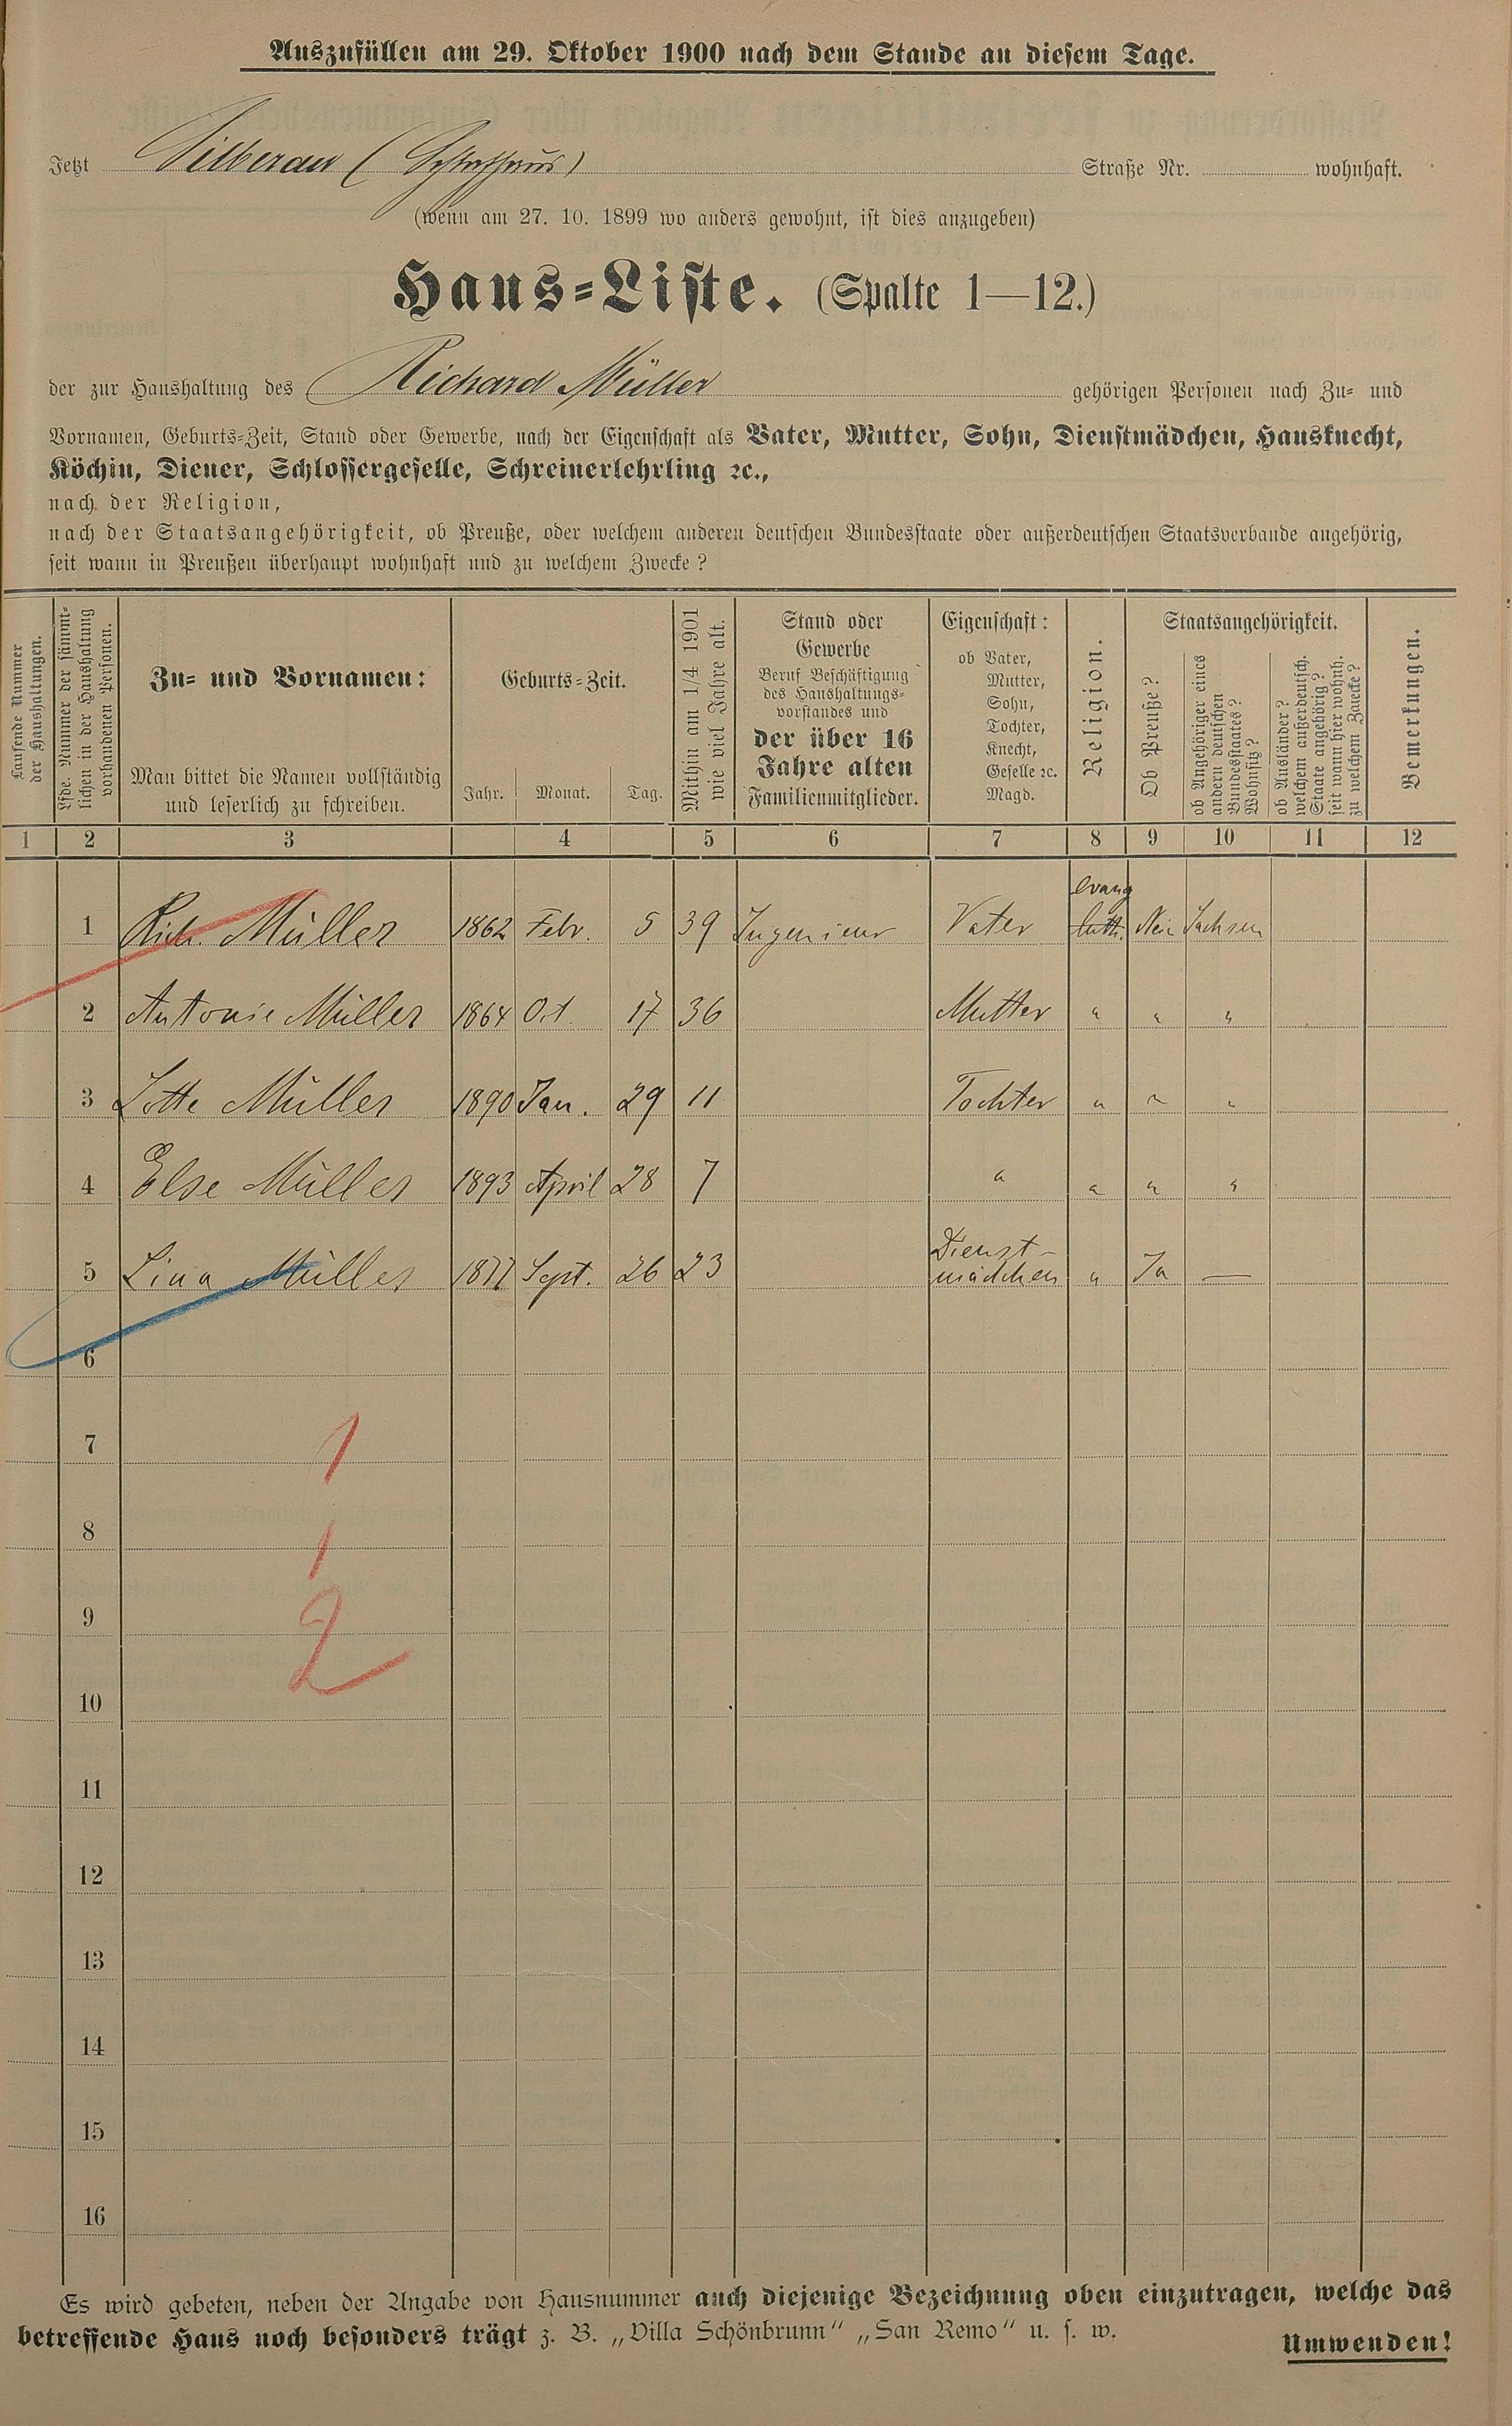 Auszufüllen am 29. Oktober 1900 nach dem Stande an diesem Tage.
Jetzt Silberau Straße Nr. wohnhaft.
(wenn am 27. 10. 1899 wo anders gewohnt, ist dies anzugeben)
Haus-Liste. (Spalte 1—12.)
der zur Haushaltung des Richard Müller gehörigen Personen nach Zu- und
Vornamen, Geburts-Zeit, Stand oder Gewerbe, nach der Eigenschaft als Vater, Mutter, Sohn, Dienstmädchen, Hausknecht,
Köchin, Diener, Schlossergeselle, Schreinerlehrling ꝛc.,
nach der Religion,
nach der Staatsangehörigkeit, ob Preuße, oder welchem anderen deutschen Bundesstaate oder außerdeutschen Staatsverbande angehörig,
seit wann in Preußen überhaupt wohnhaft und zu welchem Zwecke?
Laufende Nummer
der Haushaltungen.
Lfde. Nummer der sämmt-
lichen in der Haushaltung
vorhandenen Personen.
Zu- und Vornamen:
Man bittet die Namen vollständig
und leserlich zu schreiben.
Geburts-Zeit.
Jahr. Monat. Tag.
Mithin am 1/4 1901
wie viel Jahre alt.
Stand oder
Gewerbe
Beruf Beschäftigung
des Haushaltungs-
vorstandes und
der über 16
Jahre alten
Familienmitglieder.
Eigenschaft:
ob Vater,
Mutter,
Sohn,
Tochter,
Knecht,
Geselle ꝛc.
Magd.
Religion.
Staatsangehörigkeit.
Ob Preuße?
ob Angehöriger eines
andern deutschen
Bundesstaates?
Wohnsitz?
ob Ausländer?
welchem außerdeutsch.
Staate angehörig?
seit wann hier wohnh.
zu welchem Zwecke?
Bemerkungen.
1 2 3 4 5 6 7 8 9 10 11 12
evang
1 Rich. Müller 1862 Febr. 5 39 Ingenieur Vater luth. Nein Sachsen
2 Antonie Müller 1864 Oct. 17 36 Mutter " " "
3 Lotte Müller 1890 Jan. 29 11 Tochter " " "
4 Else Müller 1893 April 28 7 " " " "
Dienst-
5 Lina Müller 1877 Sept. 26 23 mädchen " Ja —
6
7 1
8 1
9 2
10
11
12
13
14
15
16
Es wird gebeten, neben der Angabe von Hausnummer auch diejenige Bezeichnung oben einzutragen, welche das
betreffende Haus noch besonders trägt z. B. „Villa Schönbrunn“ „San Remo“ u. s. w.
Umwenden!